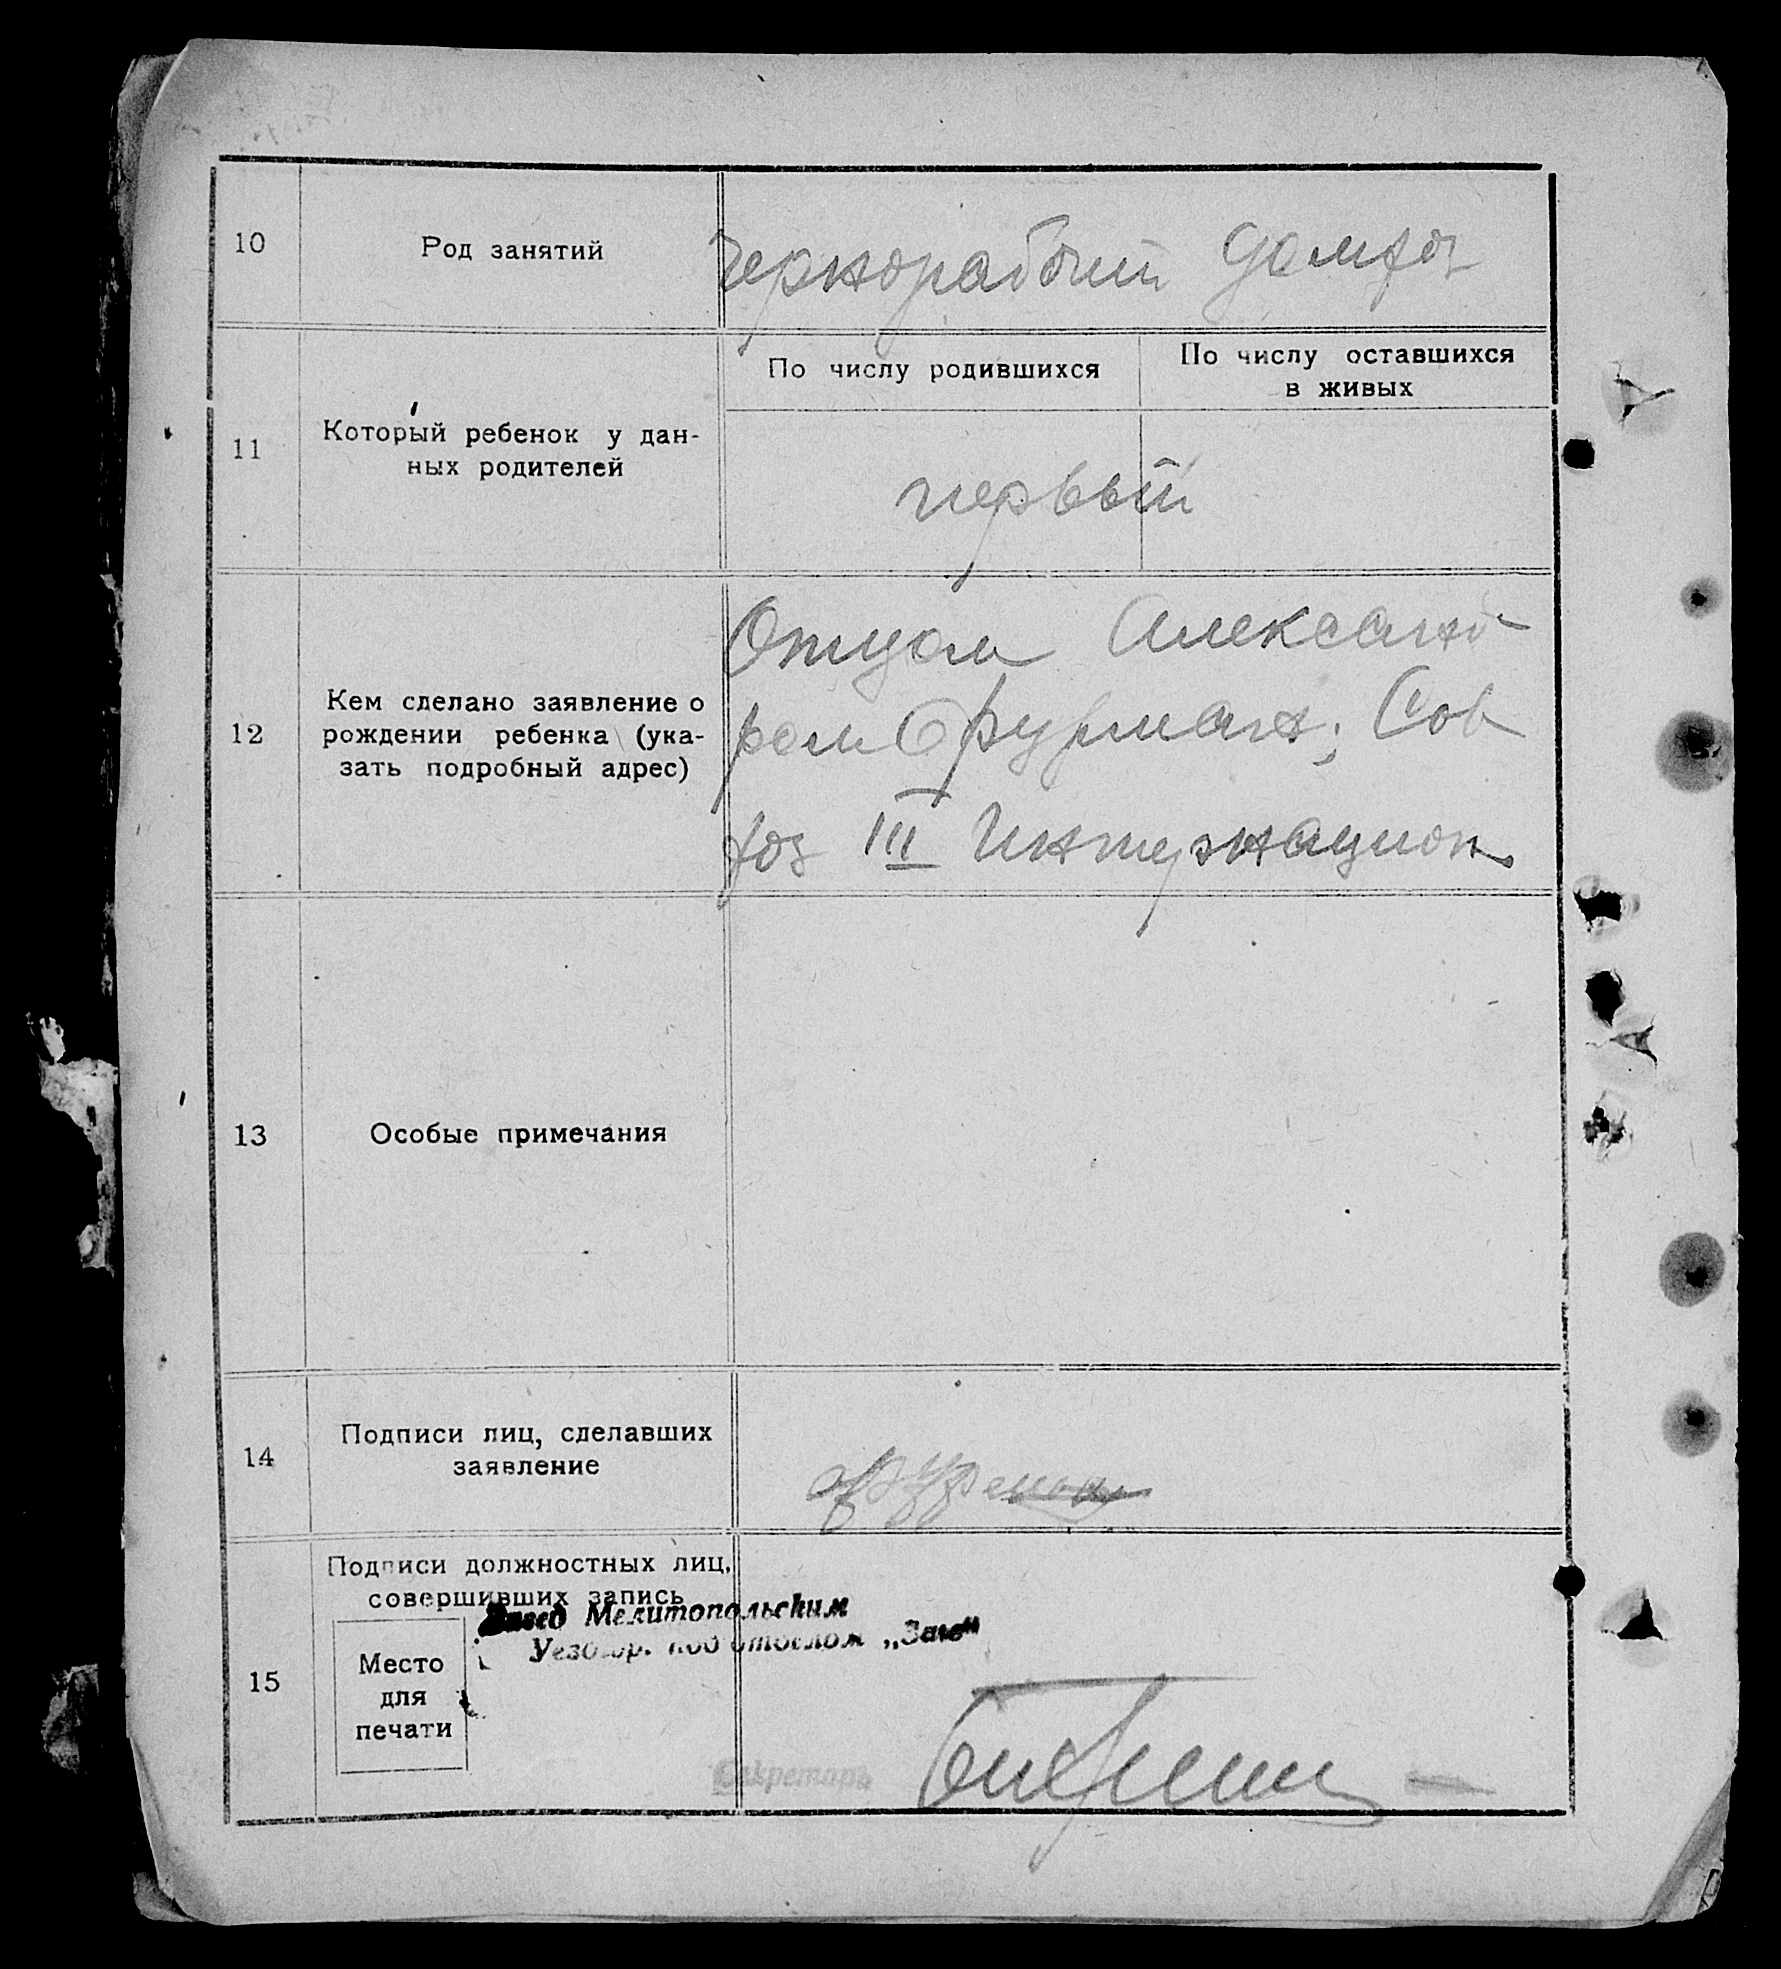 10
Род занятий
чернорабочий домхоз
11
Который ребенок у дан-
ных родителей
По числу родившихся
По числу оставшихся
в живых
первый
12
Кем сделано заявление о
рождении ребенка (ука-
зать подробный адрес)
Отцом Александ-
ром Фурман; Сов
хоз III Интернацион.
13
Особые примечания
14
Подписи лиц, сделавших
заявление
Фурман
15
Подписи должностных лиц,
совершивших запись
Место
для
печати
Мелитопольским
"Загс"
Секретарь